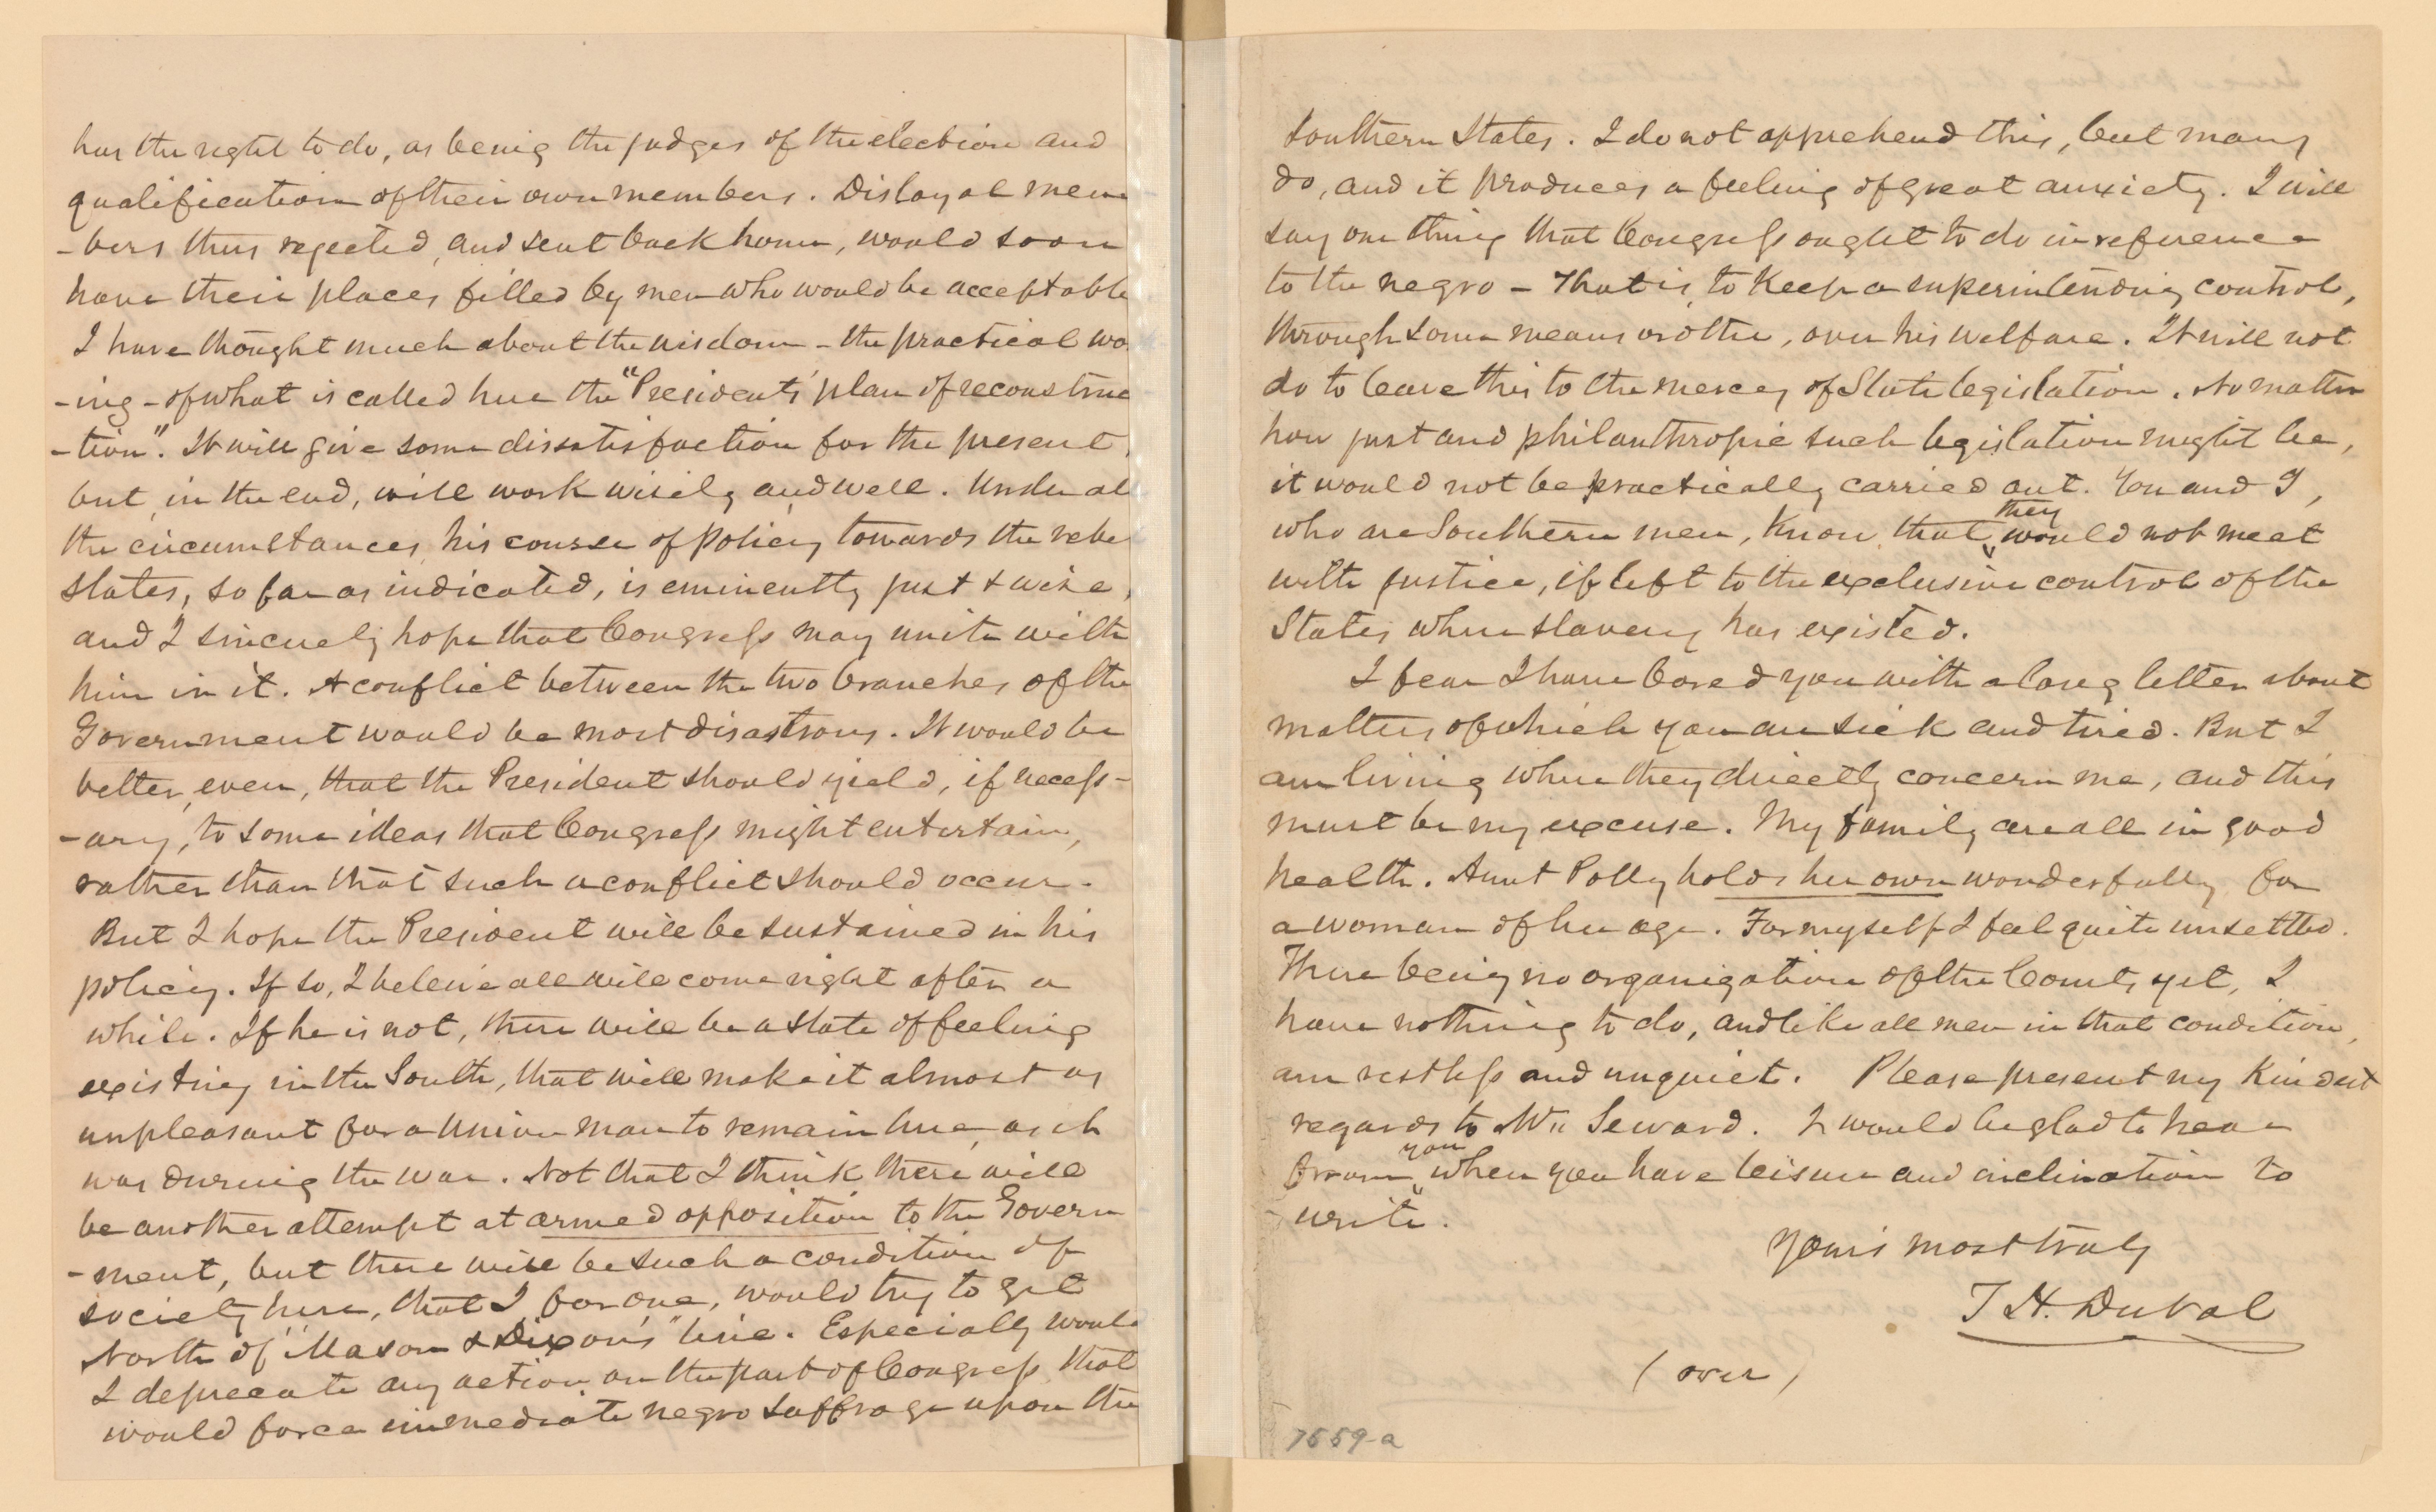 has the right to do, as being the judges of the election and
qualification of their own members. Disloyal mem
-bers thus rejected, and sent back home, would soon
have their places filled by men who would be acceptable
I have thought much about the wisdom - the practical wo
-ing - of what is called here the "President's plan of reconstruc
-tion". It will give some dissatisfaction for the present,
but, in the end, will work wisely and well. Under al
the circumstances, his course of policy towards the rebe
states, so far as indicated, is eminently just & wise,
and I sincerely hope that Congress may unite with
him in it. A conflict between the two branches of the
Government would be most disastrous. It would be
better, even, that the President should yield, if necess-
-ary, to some ideas that Congress might entertain,
rather than that such a conflict should occur.
But I hope the President will be sustained in his
policy. If so, I beleive all will come right after a
while. If he is not, there will be a state of feeling
existing in the South, that will make it almost as
unpleasant for a Union man to remain here, as it
was during the war. Not that I think there will
be another attempt at armed opposition to the Govern
-ment, but there will be such a condition of
society here, that I for one, would try to get
North of "Mason & Dixon's" line. Especially would
I deprecate any action on the part of Congress, that
would force immediate negro suffrage upon the
Southern States. I do not apprehend this, but many
do, and it produces a feeling of great anxiety. I will
say one thing that Congress ought to do in reference
to the negro - That is, to keep a superintending control,
through some means or other, over his welfare. It will not
do to leave this to the mercy of State legislation. No matter
how just and philanthropic such legislation might be,
it would not be practically carried out. You and I,
who are Southern men, know that they would not meet
with justice, if left to the exclusive control of the
States where slavery has existed.
I fear I have bored you with a long letter about
matters of which you are sick and tired. But I
am living where they directly concern me, and this
must be my excuse. My family are all in good
health. Aunt Polly holds her own wonderfully for
a woman of her age. For myself I feel quite unsettled.
There being no organization of the Courts yet, I
have nothing to do, and like all men in that condition,
am restless and unquiet. Please present my kindest
regards to Mr. Seward. I would be glad to hear
from you when you have leisure and inclination to
write.
Yours most truly
T H. Duval
(over)
7559-a